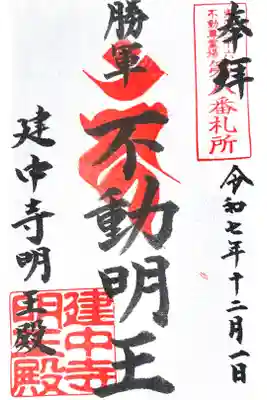 奉拝
八番札所
令和七年十二月一日
勝軍
不動明王
建中寺明王殿
建中寺
明王殿